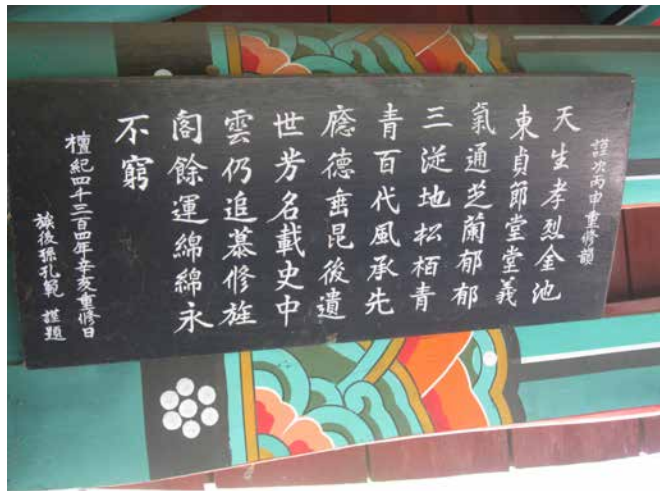 謹次丙申重修韻
天生孝烈金池
東貞節堂堂義
氣通芝蘭郁郁
三從地松栢青
青百代風承先
應德垂昆後遺
世芳名載史中
雲仍追慕修旌
閣餘運綿綿永
不窮
檀紀四千三百四年辛亥重修日
族後孫孔範 謹題